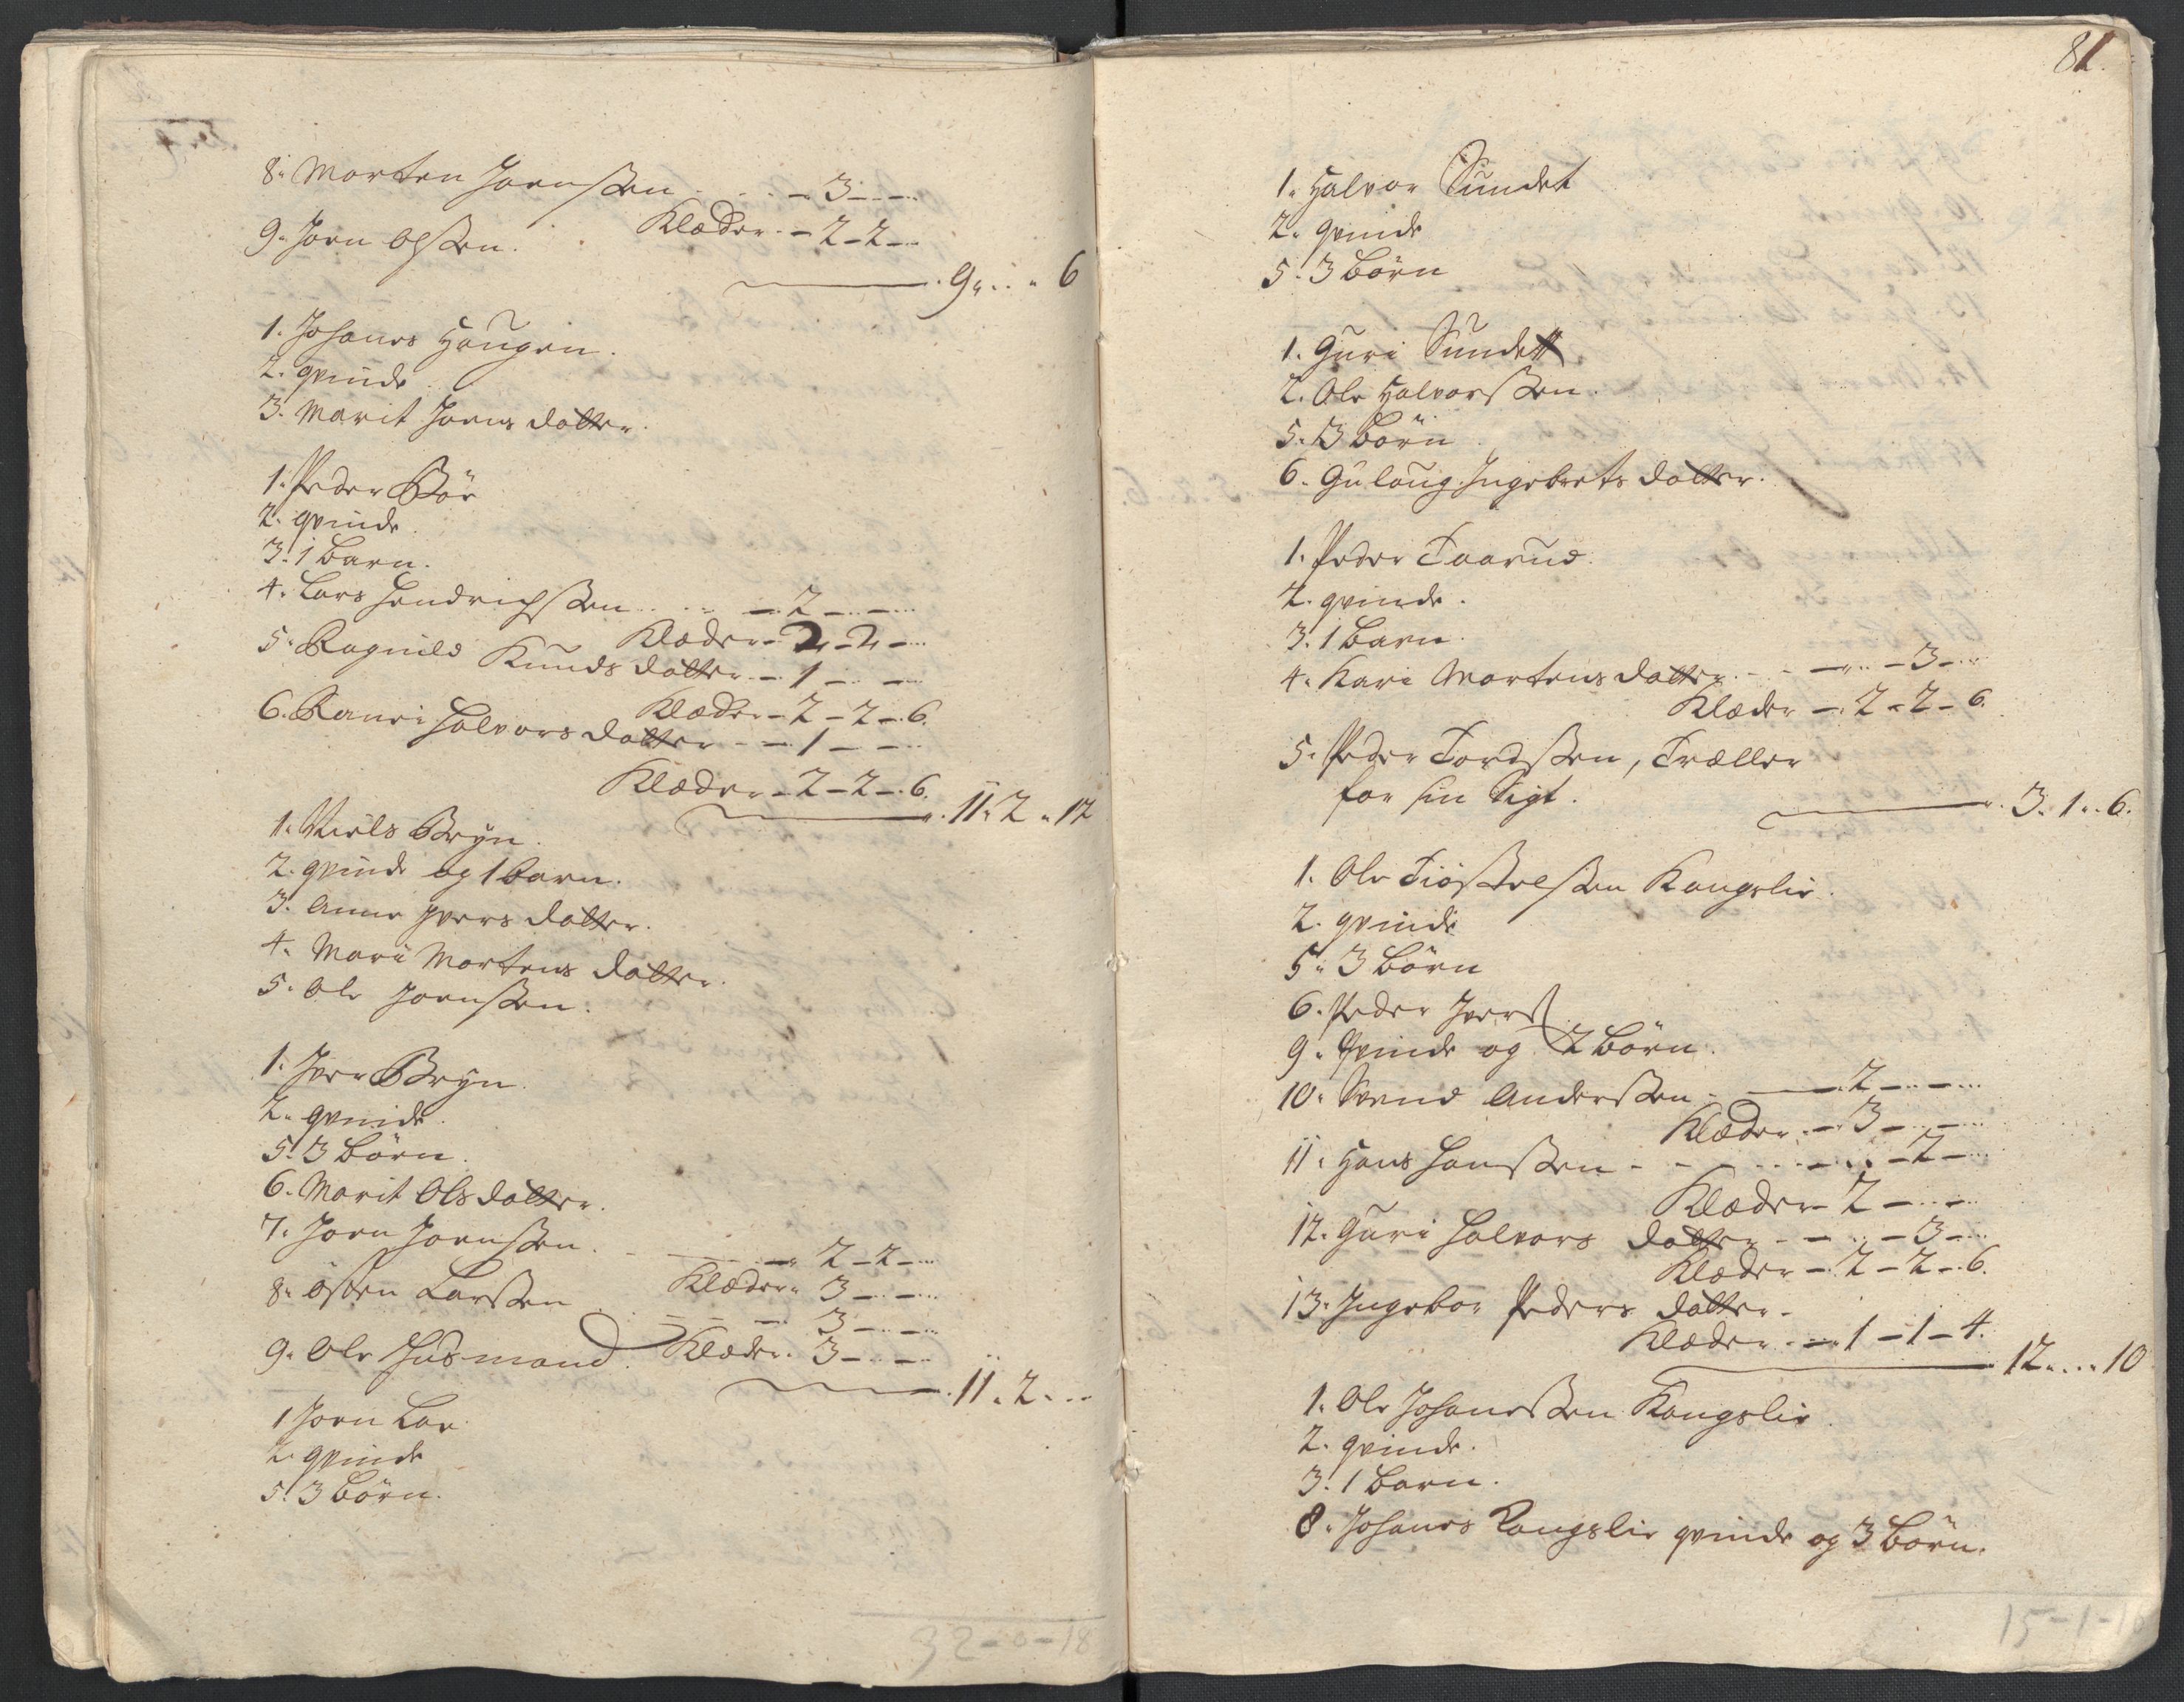 8. Morten Joenßen . . . – 3 – –
Klæder – 2 – 2 –
9. Joen Olßen.
9 . . . 6
1. Johanes Haugen.
2. qvinde
3. Marit Joens datter.
1. Peder Böe
2. qvinde
3. 1 barn.
4. Lars Hendrichßen . . . – 2 – –
Klæder – 2 – 2 –
5. Ragnild Knuds datter – 1 – –
Klæder – 2 – 2 – 6.
6. Ranri Halvors datter – – 1 – –
Klæder – 2 – 2 – 6.
11. 2 . 12
1. Niels Bryn.
2. qvinde og 1 barn.
3. Anne Ivers datter.
4. Mari Mortens datter.
5. Ole Joenßen.
1. Iver Bryn.
2. qvinde.
5. 3 börn.
6. Marit Ols datter.
7. Joen Joenßen. – 2 – 2 –
Klæder 3 – –
8. Östen Larßen – – 3 – –
Klæder. 3 – –
9. Ole Husmand.
11. 2 . . .
1 Joen Loe.
2. qvinde
5. 3 börn.
32-0-18
81.
1. Halvor Sundet
2. qvinde
5. 3 börn
1. Guri Sundet
2. Ole Halvorßen.
5. 3 börn
6. Gulaug Ingebrets datter.
1. Peder Taarud.
2. qvinde.
3. 1 barn.
4. Kari Mortens datter. – – . . – 3 – . .
Klæder – 2 – 2 – 6.
5. Peder Tordßen, Træller
for sin Sigt.
3. 1 . . 6.
1. Ole Tiöstelßen Kongslie.
2. qvinde
5. 3 börn
6. Peder Iverß
9. Qvinde og 2 börn.
10. Svend Anderßen – 2 – –
Klæder – 3 – –
11. Hans Hanßen – – – . . . – 2 –
Klæder – 2 – –
12. Guri Halvors datter – – . . – 3 –
Klæder – 2 – 2 – 6.
13. Ingebor Peders datter –
Klæder . . – 1 – 1 – 4.
12 . . . 10
1. Ole Johanesßen Kongslie.
2. qvinde.
3. 1 barn.
8. Johanes Kongslie qvinde og 3 börn.
15-1-16